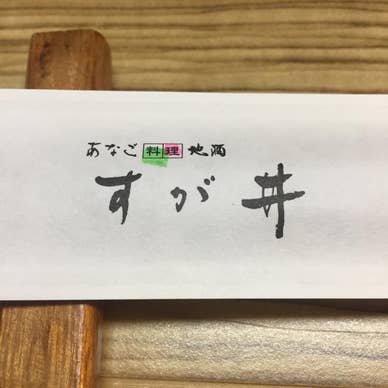 あなご料理地酒
すが井